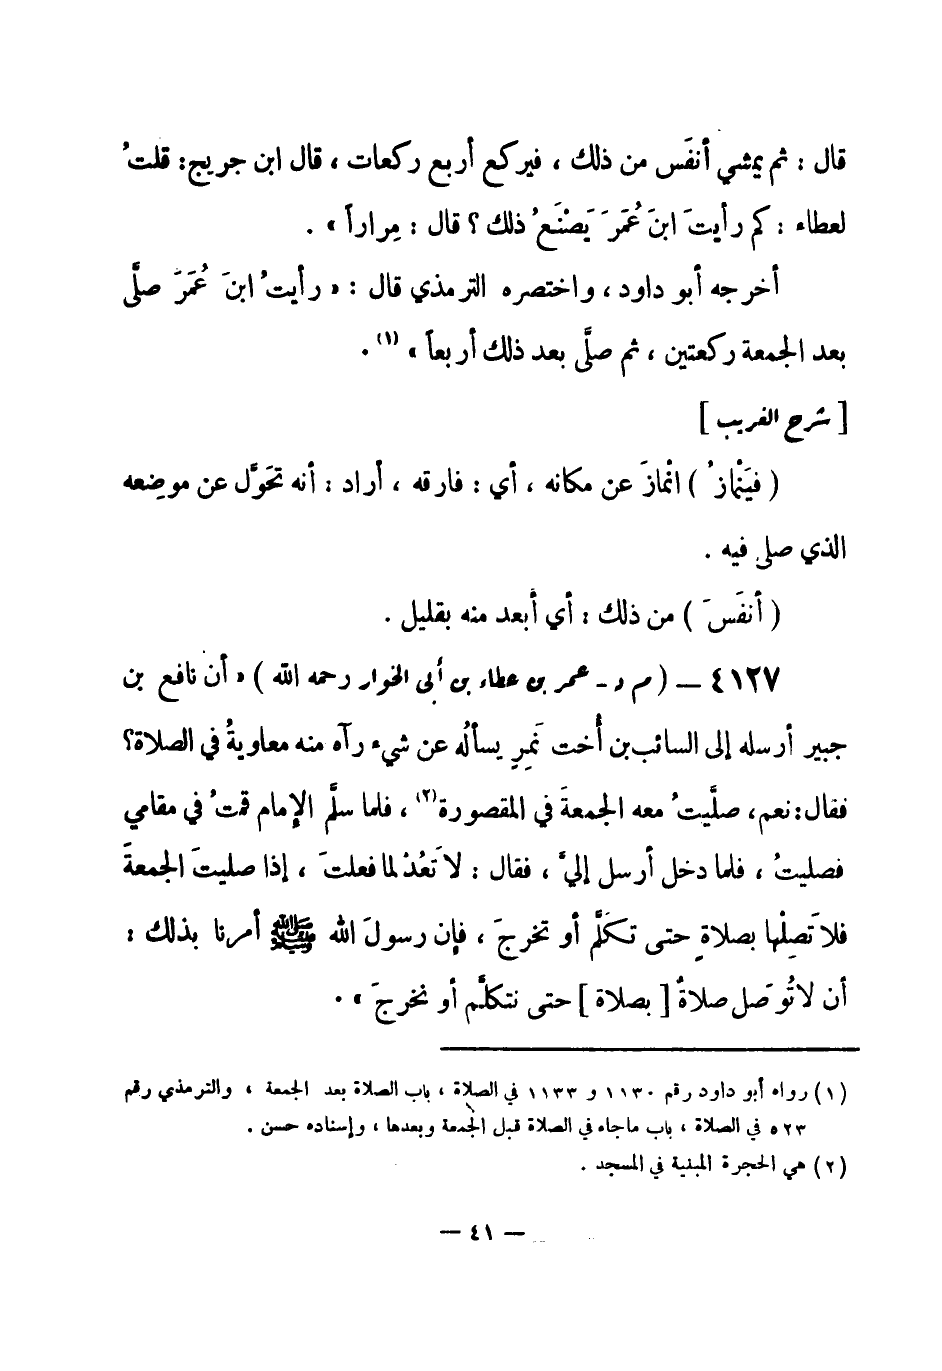 قال : ثم يمشي أنفَس من ذلك ، فيركع أربع ركعات ، قال ابن جريج: قلتُ
لعطاء : كم رأيتَ ابنَ عُمَرَ يَصْنَعُ ذلك ؟ قال : مِراراً » .
أخرجه أبو داود ، واختصره الترمذي قال : « رأيتُ ابنَ عُمَرَ صلَّى
بعد الجمعة ركعتين ، ثم صلَّى بعد ذلك أربعاً » (١) .
[ شرح الغريب ]
( فيَنْمازُ ) انْمازَ عن مكانه ، أي : فارقه ، أراد : أنه تحَوَّل عن موضِعه
الذي صلى فيه .
( أنفَسَ ) من ذلك : أي أبعد منه بقليل .
٤١٢٧ — ( م د - عمر بن عطاء بن أبي الخوار رحمه الله ) « أن نافع بن
جبير أرسله إلى السائب بن أُخت نَمِرٍ يسألُه عن شيء رآه منه معاويةُ في الصلاة؟
فقال: نعم، صلَّيتُ معه الجمعةَ في المقصورة (٢) ، فلما سلَّم الإمام قمتُ في مقامي
فصليتُ ، فلما دخل أرسل إليَّ ، فقال : لا تَعُدْ لما فعلتَ ، إذا صليتَ الجمعةَ
فلا تَصِلْها بصلاةٍ حتى تكلَّم أو تخرجَ ، فإن رسولَ الله ﷺ أمرنا بذلك :
أن لا تُوَصل صلاةٌ [ بصلاة ] حتى نتكلَّم أو نخرجَ » .
(١) رواه أبو داود رقم ١١٣٠ و ١١٣٣ في الصلاة ، باب الصلاة بعد الجمعة ، والترمذي رقم
٥٢٣ في الصلاة ، باب ماجاء في الصلاة قبل الجمعة وبعدها ، وإسناده حسن .
(٢) هي الحجرة المبنية في المسجد .
— ٤١ —